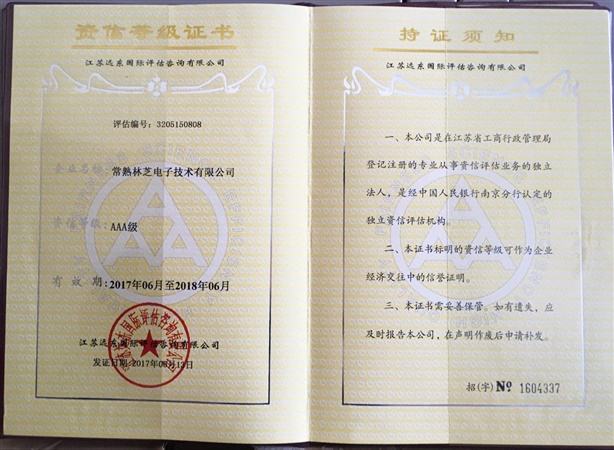 资信等级证书
江苏远东国际评估咨询有限公司
评估编号：3205150808
企业名称：常熟林芝电子技术有限公司
资信等级：AAA级
有 效 期：2017年06月至2018年06月
江苏远东国际评估咨询有限公司
发证日期：2017年06月13日
持证须知
江苏远东国际评估咨询有限公司
一、本公司是在江苏省工商行政管理局
登记注册的专业从事资信评估业务的独立
法人，是经中国人民银行南京分行认定的
独立资信评估机构。
二、本证书标明的资信等级可作为企业
经济交往中的信誉证明。
三、本证书需妥善保管。如有遗失，应
及时报告本公司，在声明作废后申请补发。
招(字) № 1604337